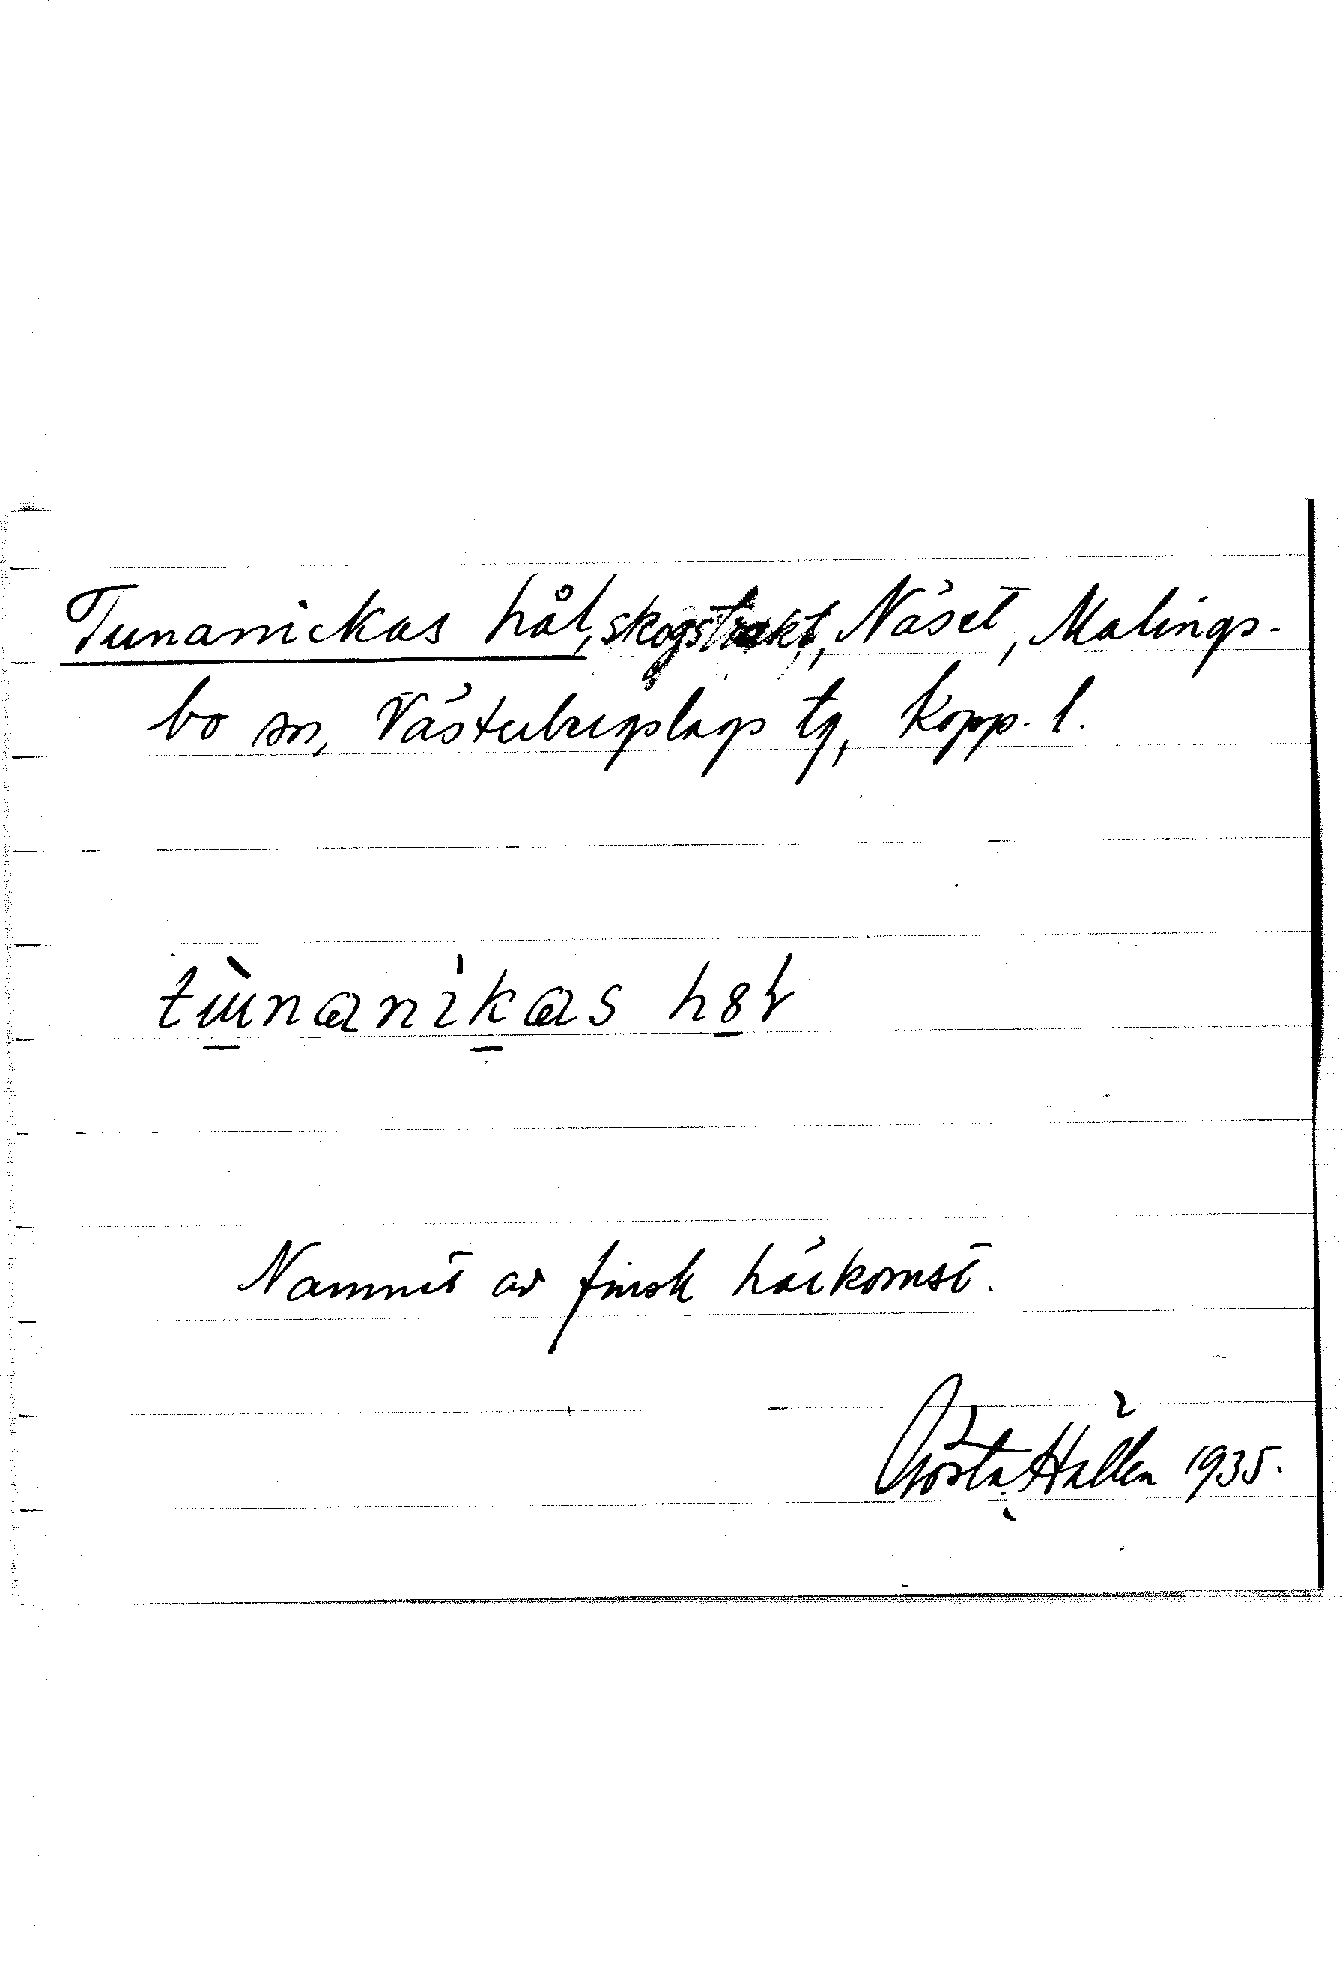 Tunanickas hål, skogstrakt, Näset, Malings-
bo sn, Västerbergslags tg, Kopp. l.
tùnanikas h8ł
Namnet av finsk härkomst.
Gösta Hallén 1935.